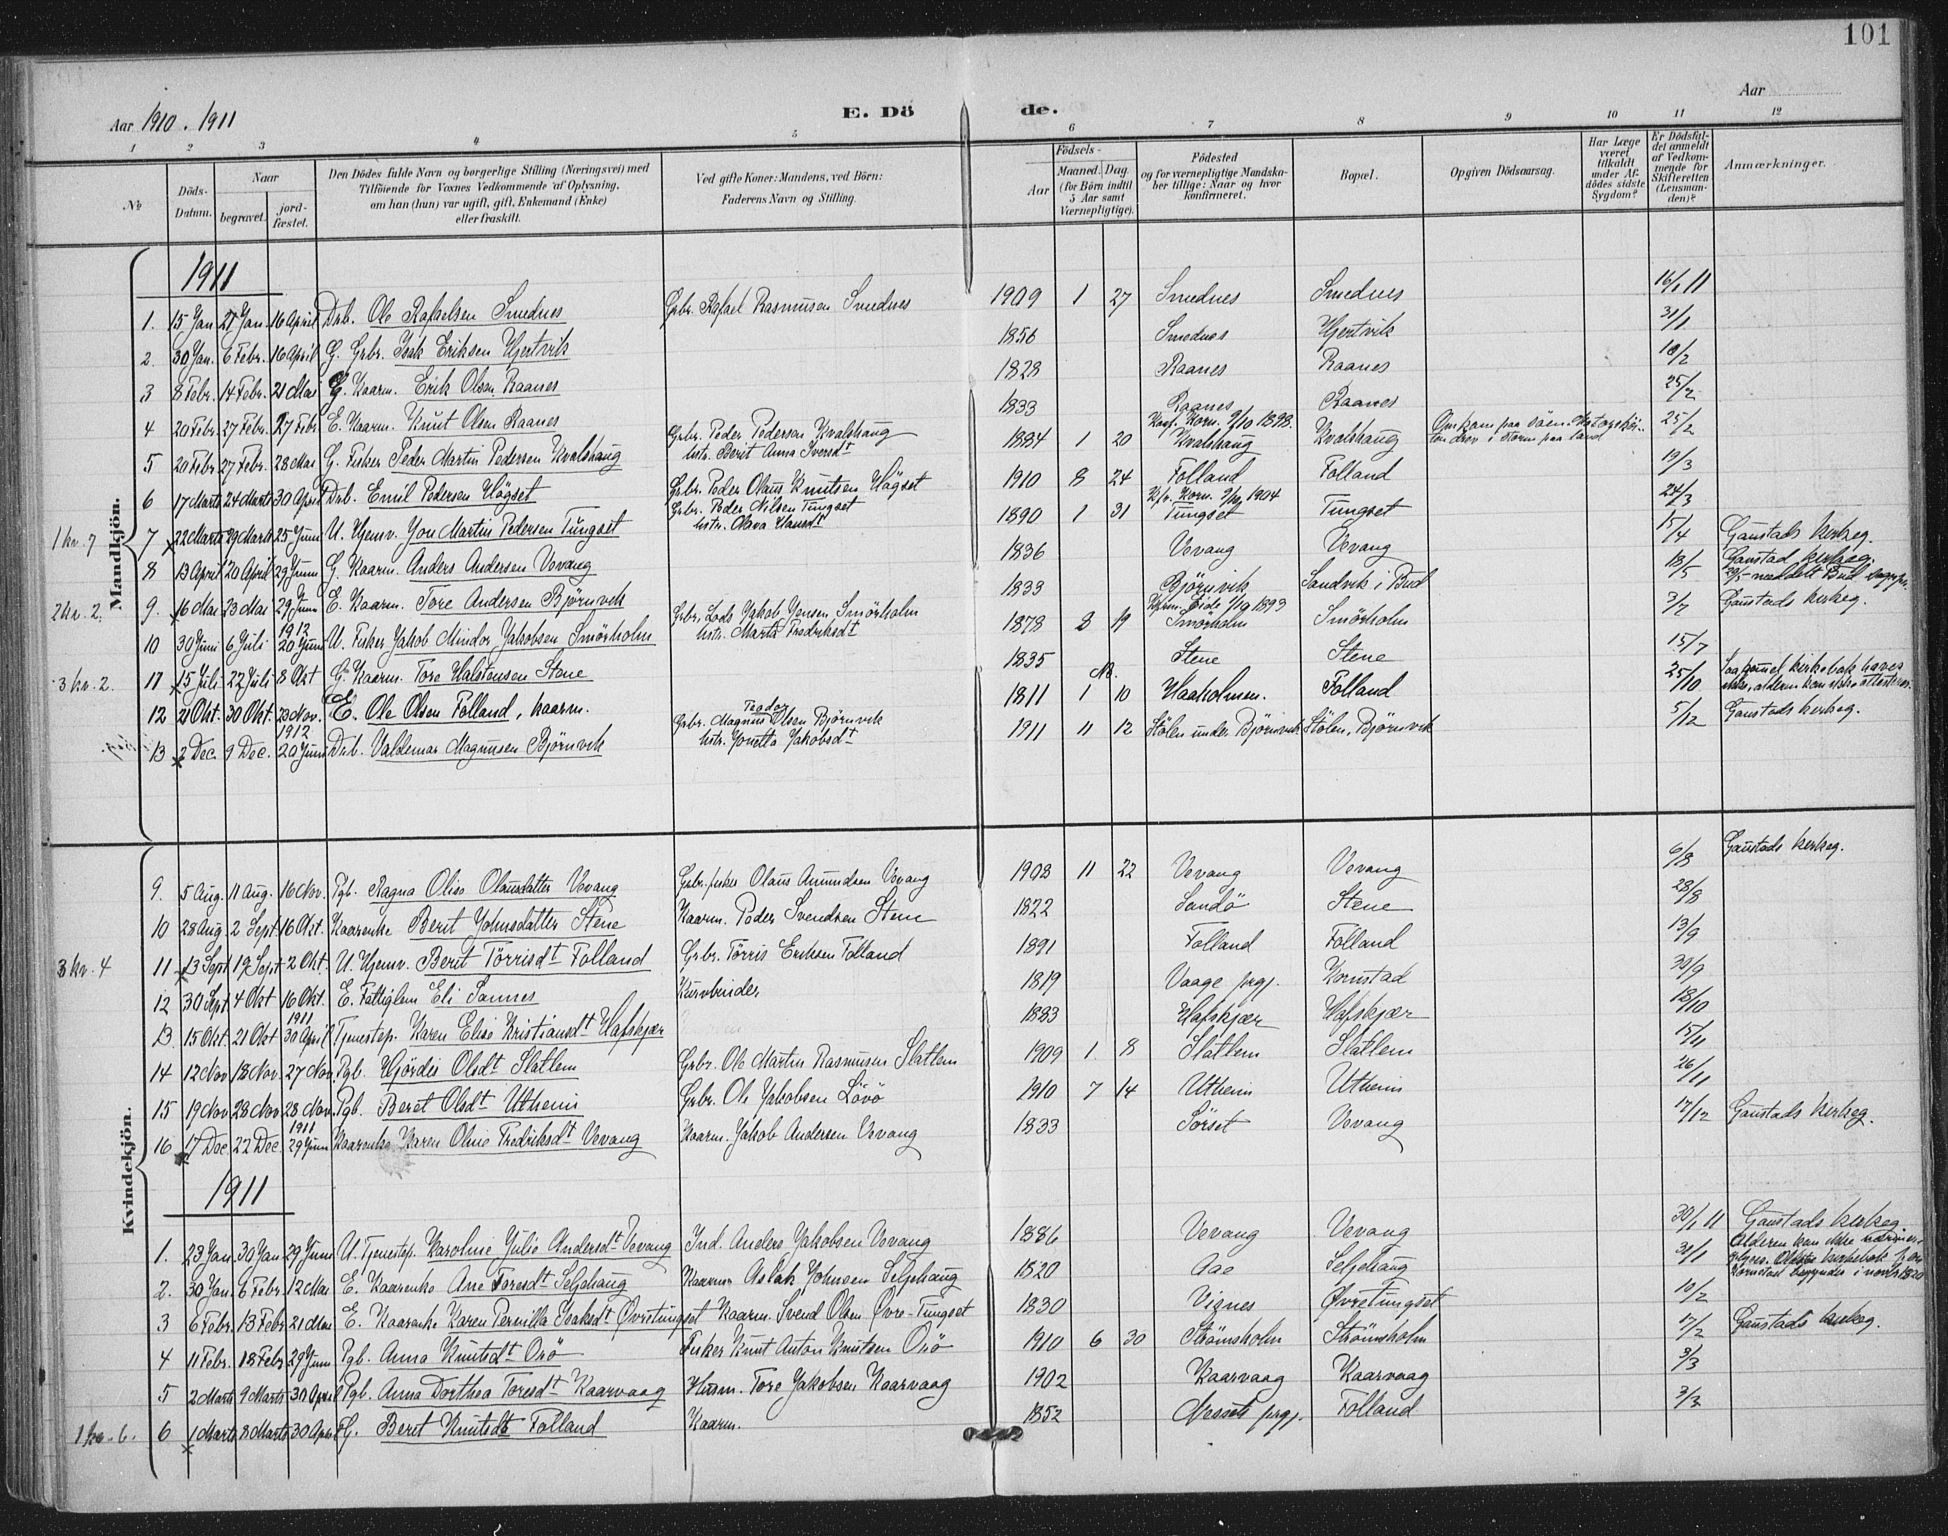 101
Aar 1910. 1911
E. Dö de.
Aar
1 2 3 4 5 6 7 8 9 10 11 12
№
Döds-Datum.
Naar
begravet.
jord-fæstet.
Den Dödes fulde Navn og borgerlige Stilling (Næringsvei) med
Tilföiende for Voxnes Vedkommende af Oplysning,
om han (hun) var ugift, gift, Enkemand (Enke)
eller fraskilt.
Ved gifte Koner: Mandens, ved Börn:
Faderens Navn og Stilling.
Födsels-
Aar
Maaned. Dag.
(for Börn indtil
5 Aar samt
Værnepligtige).
Födested
og for værnepligtige Mandska-
ber tillige: Naar og hvor
konfirmeret.
Bopæl.
Opgiven Dödsaarsag.
Har Læge
været
tilkaldt
under Af-
dödes sidste
Sygdom?
Er Dödsfal-
det anmeldt
af Vedkom-
mende for
Skifteretten
(Lensman-
den)?
Anmærkninger.
Mandkjön.
1911
1. 15 Jan 27 Jan 16 April Drb. Ole Rafaelsen Smednes Grbr. Rafael Rasmusen Smednes 1909 1 27 Smednes Smednes 16/1 11
2. 30 Jan. 6 Febr. 16 April G. Grbr. Isak Eriksen Hjertvik 1856 Smednes Hjertvik 31/1
3 8 Febr. 14 Febr. 21 Mai G. Kaarm. Erik Olsen Raanes 1828 Raanes Raanes 10/2
4 20 Febr. 27 Febr. 27 Febr E. Kaarm. Knut Olsen Raanes 1833 Raanes Raanes 25/2
5 20 Febr 27 Febr. 28 Mai G. Fisker Peder Martin Pedersen Kvalshaug Grbr. Peder Pedersen Kvalshaug hstr. Berit Anna Iversdt 1884 1 20 Konf. Korn. 9/10 1898. Kvalshaug Kvalshaug Omkom paa söen. 25/2
6 17 Marts 24 Marts 30 April Drb. Emil Pedersen Högset Grbr. Peder Olaus Knutsen Högset 1910 8 24 Folland Folland 19/3
1 kv. 7 7 22 Marts 29 Marts 25 Juni U. Hjemv. Jon Martin Pedersen Tungset Grbr. Peder Nilsen Tungset hstr. Olava Hansdt 1890 1 31 Kfr. Korn. 9/10 1904 Tungset Tungset 24/3
8 13 April 20 April 29 Juni G. Kaarm. Anders Andersen Vevang 1836 Vevang Vevang 15/4 Gaustads kirkeg.
2 kv. 2. 9. 16 Mai 23 Mai 29 Juni E. Kaarm. Tore Andersen Björnvik 1833 Björnvik Sandvik i Bud 18/5 Gaustad kirkeg.
10 30 Juni 6 Juli 1912 20 Juni U. Fisker Jakob Mindor Jakobsen Smörholm Grbr. Lods Jakob Jensen Smörholm hstr. Marta Fredriksdt 1878 2 19 Kfrm. Eide 1/10 1893 Smörholm Smörholm 3/7 Gaustads kirkeg.
3 kv. 2. 11 15 Juli 22 Juli 8 Okt G. Kaarm. Tore Halstensen Stene 1835 Stene Stene 15/7
12 21 Okt. 30 Okt. 23 Nov. E. Ole Olsen Folland, kaarm. 1811 1 10 Haaholmen. Folland 25/10 Saa gammel kirkebok haves ikke, alderen kan ikke attesteres.
13 2 Dec. 9 Dec. 1912 20 Juni Drb. Valdemar Magnusen Björnvik Grbr. Magnus Teodor Olsen Björnvik hstr. Jonetta Jakobsdt 1911 11 12 Stölen under Björnvik Stölen, Björnvik 5/12 Gaustads kirkeg.
Kvindekjön.
9. 5 Aug. 11 Aug. 16 Nov. Pgb. Ragna Olise Olausdatter Vevang Grbr. fisker Olaus Amundsen Vevang 1908 11 22 Vevang Vevang 6/8 Gaustads kirkeg.
10 28 Aug. 2 Sept 16 Okt. Kaarenke Berit Johnsdatter Stene Kaarm. Peder Svendsen Stene 1822 Sandö Stene 28/8
3 kv. 4 11 13 Sept 19 Sept 2 Okt. U. Hjemv. Berit Törrisdt Folland Grbr. Törris Eriksen Folland 1891 Folland Folland 13/9
12 30 Sept 4 Okt 16 Okt. E. Fattiglem Eli Sannes Kurvbinder 1819 Vaage prgj. Kornstad 30/9
13 15 Okt. 21 Okt 1911 30 April Tjenestep. Karen Elise Kristiansdt Hafskjær 1883 Hafskjær Hafskjær 18/10
14 12 Nov 18 Nov 27 Nov. Pgb. Hjördis Olsdt Slatlem Grbr. Ole Martin Rasmusen Slatlem 1909 1 8 Slatlem Slatlem 15/11
15 19 Nov 28 Nov 28 Nov. Pgb. Beret Olsdt Utheim Grbr. Ole Jakobsen Lövö 1910 7 14 Utheim Utheim 26/11
16 17 Dec 22 Dec 1911 29 Juni Kaarenke Karen Oline Fredriksdt Vevang Kaarm. Jakob Andersen Vevang 1833 Sörset Vevang 17/12 Gaustads kirkeg.
1911
1. 23 Jan. 30 Jan 29 Juni U. Tjenestep. Karoline Julie Andersdt Vevang Ind. Anders Jakobsen Vevang 1886 Vevang Vevang 30/1 11 Gaustads kirkeg.
2. 30 Jan. 6 Febr. 12 Mai E. Kaarenke Ane Toresdt Seljehaug Kaarm Aslak Johnsen Seljehaug 1820 Aae Seljehaug 31/1 Alderen kan ikke
3 6 Febr. 13 Febr 21 Mai E. Kaarenke Karen Pernilla Isaksdt Øvretungset Kaarm. Svend Olsen Øvre-Tungset 1830 Visnes Øvretungset 10/2
4 11 Febr. 18 Febr 29 Juni Pgb. Anna Knutsdt Orö Fisker Knut Anton Knutsen Orö 1910 6 30 Strömsholm Strömsholm 17/2 Gaustads kirkeg.
5 2 Marts 9 Marts 30 April Pgb. Anna Dorthea Toresdt Kaarvaag Husm. Tore Jakobsen Kaarvaag 1902 Kaarvaag Kaarvaag 3/3
1 kv. 6. 6 1 Marts 8 Marts 30 April G. Beret Knutsdt Folland Kaarm. 1852 Nesset prgj. Folland 3/3